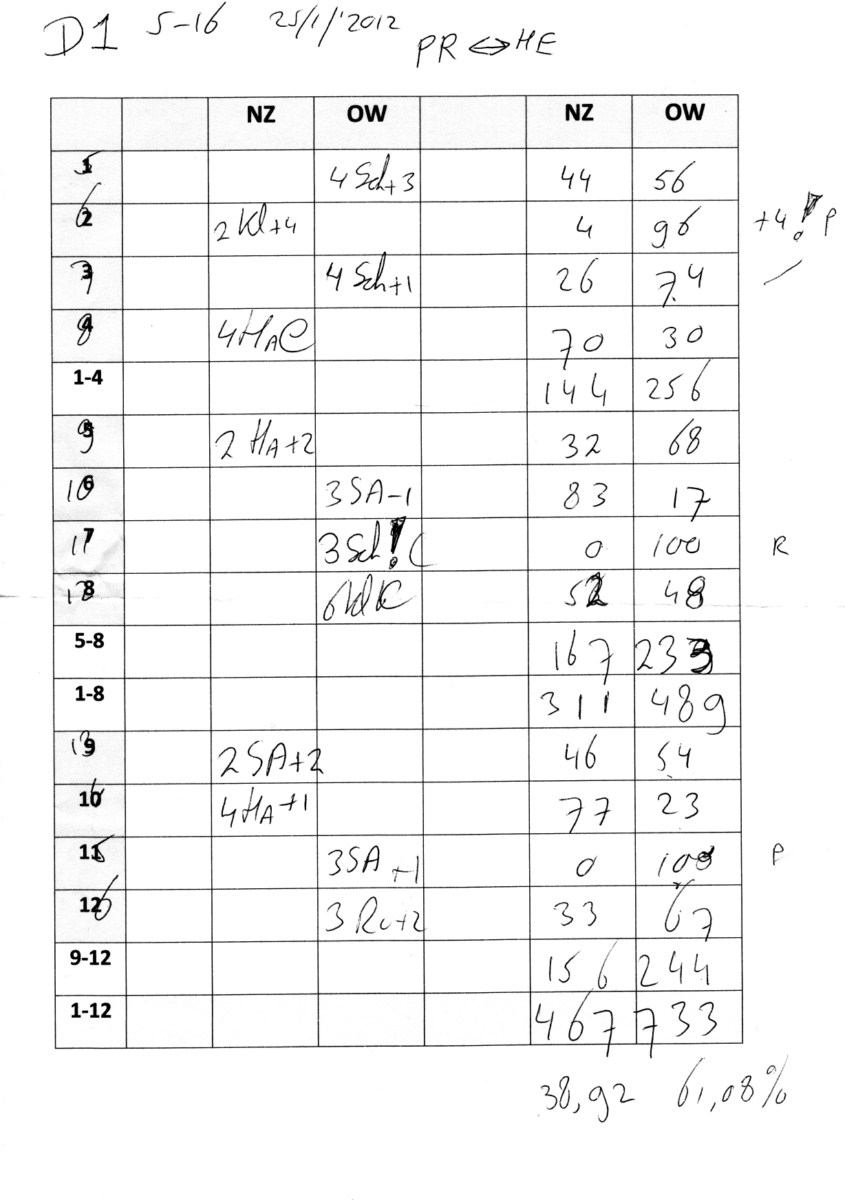 D1 5-16 25/1/'2012 PR ⟷ HE
NZ OW NZ OW
5 4 Sch+3 44 56
6 2 Kl+4 4 96 +4! P
7 4 Sch+1 26 74
8 4 HA C 70 30
1-4 144 256
9 2 HA+2 32 68
10 3 SA-1 83 17
11 3 Sch! C 0 100 R
12 6 Kl C 52 48
5-8 167 233
1-8 311 489
13 2 SA+2 46 54
10 4 HA+1 77 23
15 3 SA +1 0 100 P
16 3 Ru+2 33 67
9-12 156 244
1-12 467 733
38,92 61,08%